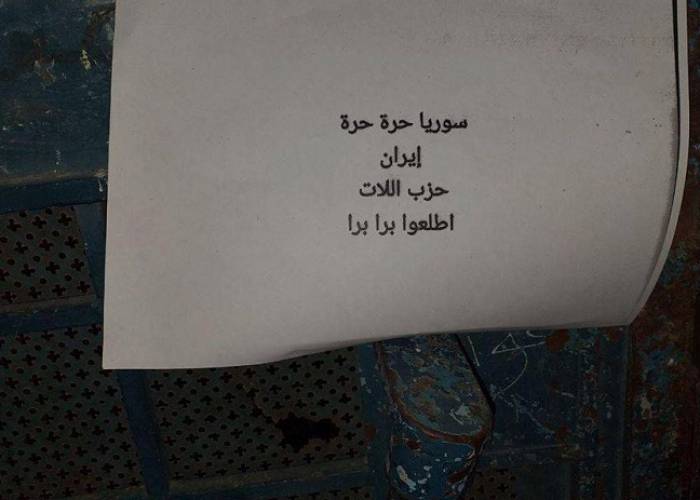 سوريا حرة حرة
إيران
حزب اللات
اطلعوا برا برا